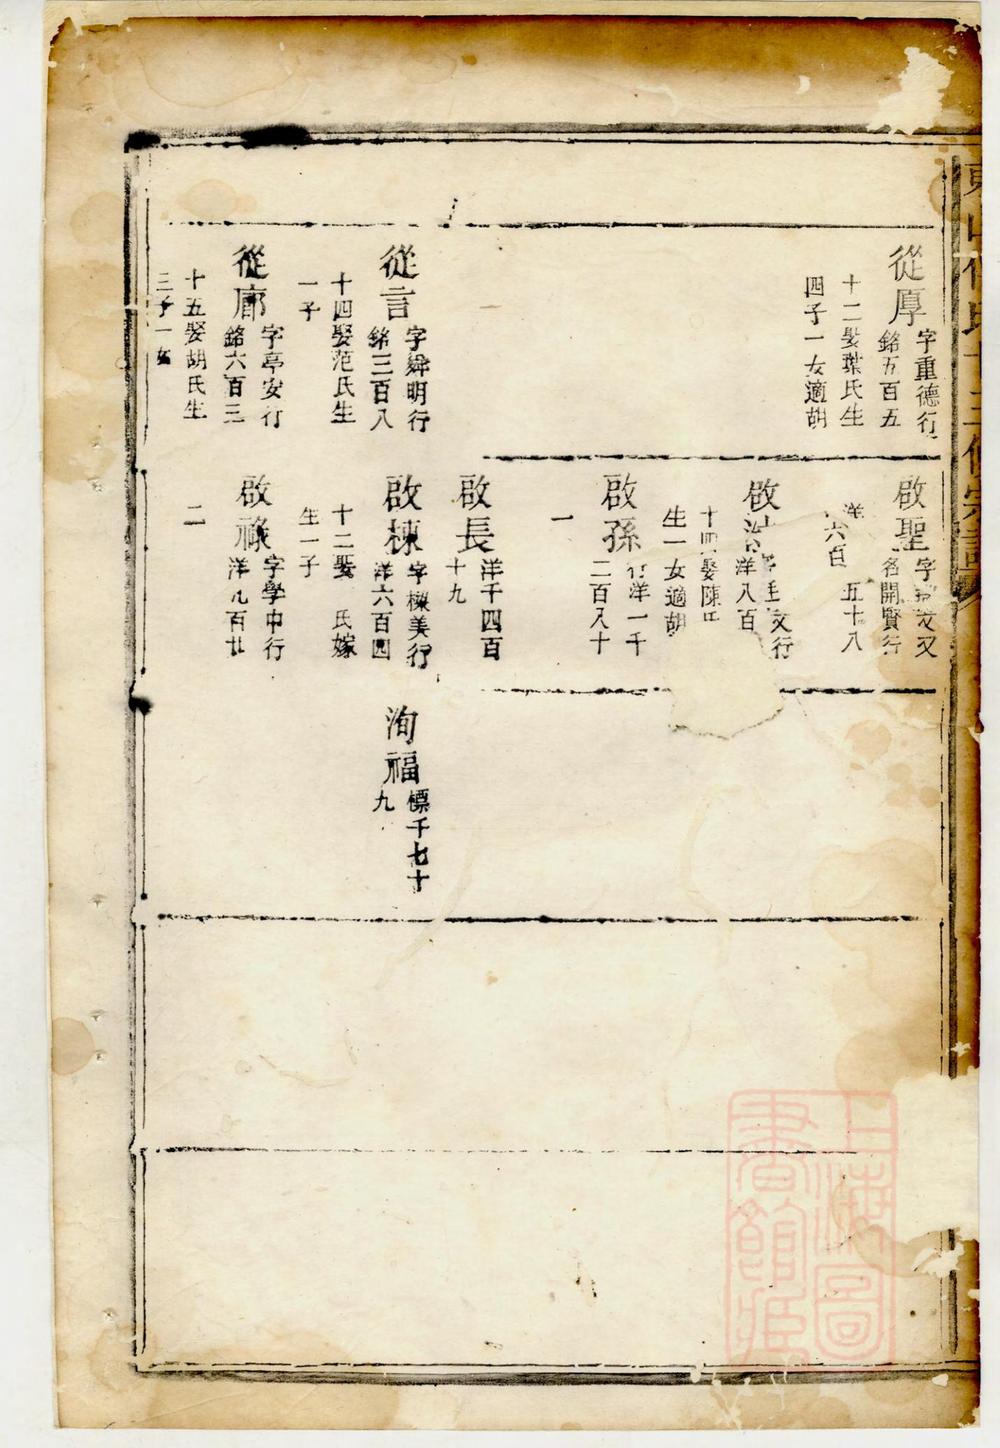 從厚
字重德行
銘五百五
十二娶葉氏生
四子一女適胡
從言
字舜明行
銘三百八
十四娶范氏生
一子
從廓
字亭安行
銘六百三
十五娶胡氏生
三子一女
啟聖
字 文又
名開賢行
洋 五十八
六百
啟
文行
洋八百
十四娶陳氏
生一女適胡
啟孫
行洋一千
二百八十
一
啟長
洋千四百
十九
啟棟
字樑美行
洋六百四
十二娶 氏嫁
生一子
啟祿
字學中行
洋九百廿
二
洵福
標千七十
九
上海圖
書館藏